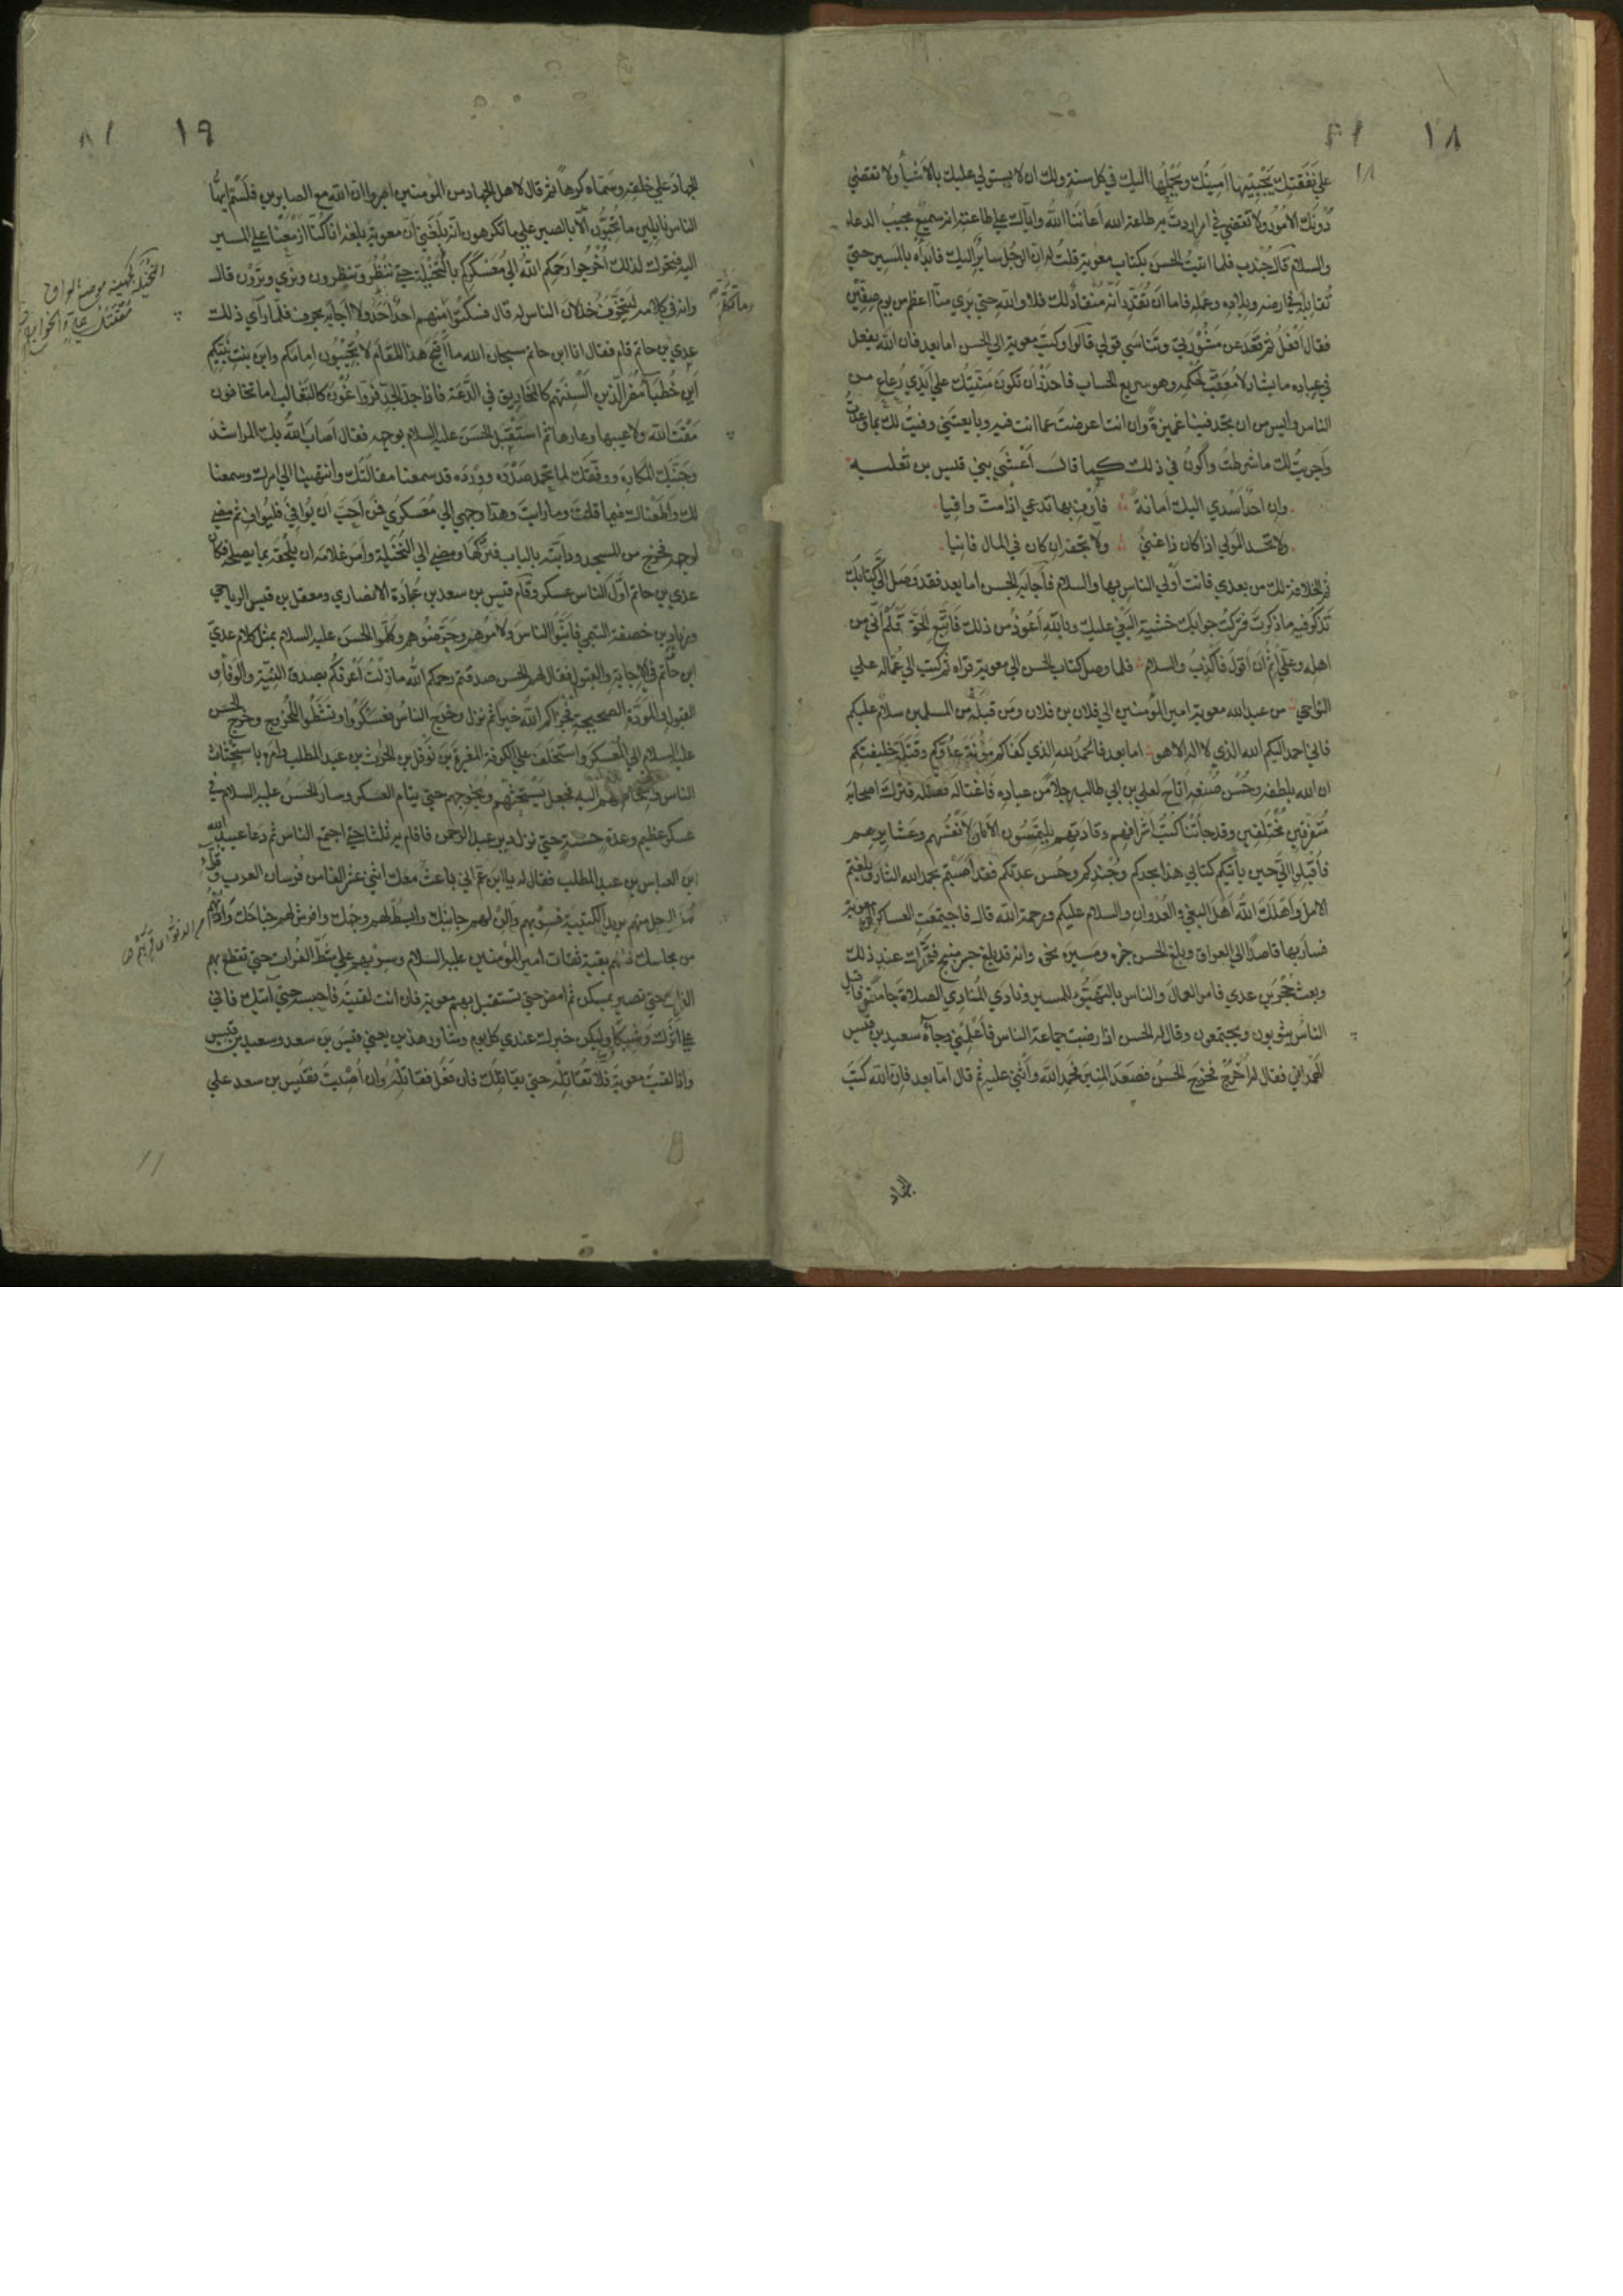 ١٨
على نفقتك يجبيها امينك ويحملها اليك في كل سنة ولك ان لا يستولي عليك بالاشياء ولا تقضى
دونك الامور ولا تعصى في امر اردت به طاعة الله أعاننا الله واياك على طاعته انه سميع مجيب الدعاء
والسلام قال جندب فلما اتيت الحسن بكتاب معوية قلت له ان الرجل سائر اليك فابدأه بالمسير حتى
تقاتله في ارضه وبلاده وعمله فاما ان تقدر انه منقاد لك فلا والله حتى يرى منا اعظم من يوم صفين
فقال أفعل ثم قعد عن مشورتي وتناسى قولي قالوا وكتب معوية الى الحسن اما بعد فان الله يفعل
في عباده ما يشاء لا معقب لحكمه وهو سريع الحساب فاحذر أن تكون منيتك على أيدي رعاع من
الناس وايس من ان تجد فينا غميزة وان انت اعرضت عما انت فيه وبايعتني وفيت لك بما وعدت
وأجريت لك ما شرطت واكون في ذلك كما قال أعشى بني قيس بن ثعلبه
وان احد اسدى اليك امانة فأوف بها تدعى اذا مت وافيا
ولا تحسد المولى اذا كان ذا غنى ولا تجفه ان كان في المال فانيا
ثم الخلافة لك من بعدي فانت أولى الناس بها والسلام فأجابه الحسن اما بعد فقد وصل الي كتابك
تذكر فيه ما ذكرت فتركت جوابك خشية البغي عليك وبالله أعوذ من ذلك فاتبع الحق تعلم اني من
اهله وعلي إثم أن أقول فأكذب والسلام فلما وصل كتاب الحسن الى معوية قراه ثم كتب الى عماله على
النواحي من عبد الله معوية امير المؤمنين الى فلان بن فلان ومن قبله من المسلمين سلام عليكم
فاني احمد اليكم الله الذي لا اله الا هو اما بعد فالحمد لله الذي كفاكم مؤنة عدوكم وقتلة خليفتكم
ان الله بلطفه وحسن صنعه اتاح لعلي بن ابي طالب رجلا من عباده فاغتاله فقتله فترك اصحابه
متفرقين مختلفين وقد جاءتنا كتب اشرافهم وقادتهم يلتمسون الأمان لأنفسهم وعشايرهم
فأقبلوا الي حين يأتيكم كتابي هذا بجدكم وجندكم وحسن عدتكم فقد أصبتم بحمد الله الثار وبلغتم
الامل وأهلك الله أهل البغي والعدوان والسلام عليكم ورحمة الله قال فاجتمعت العساكر الى معوية
فسار بها قاصدا الى العراق وبلغ الحسن خبره ومسيره نحوه وانه قد بلغ جسر منبج فتحرك عند ذلك
وبعث حجر بن عدي فامر العمال والناس بالتهيؤ للمسير ونادى المنادي الصلاة جامعة فاقبل
الناس يثوبون ويجتمعون وقال له الحسن اذا رضيت جماعة الناس فأعلمني وجاءه سعيد بن قيس
الهمداني فقال له اخرج فخرج الحسن فصعد المنبر فحمد الله وأثنى عليه ثم قال اما بعد فان الله كتب
الجهاد
١٩
الجهاد على خلقه وسماه كرها ثم قال لاهل الجهاد من المومنين اصبروا ان الله مع الصابرين فلستم ايها
الناس نايلين ما تحبون الا بالصبر على ما تكرهون انه بلغني أن معوية بلغه انا كنا ازمعنا على المسير
اليه فتحرك لذلك اخرجوا رحمكم الله الى معسكركم بالنخيلة حتى ننظر وتنظرون ونرى وترون قال
وانه في كلامه ليتخوف خذلان الناس له قال فسكتوا فما تكلم منهم احد ولا اجابه بحرف فلما رأى ذلك
عدي بن حاتم قام فقال انا ابن حاتم سبحان الله ما أقبح هذا المقام لا تجيبون امامكم وابن بنت نبيكم
أين خطباء مضر الذين السنتهم كالمخاريق في الدعة فاذا جد الجد فرواغون كالثعالب اما تخافون
مقت الله ولا عيبها وعارها ثم استقبل الحسن عليه السلام بوجهه فقال اصاب الله بك المراشد
وجنبك المكاره ووفقك لما تحمد صدره وورده قد سمعنا مقالتك وانتهينا الى امرك وسمعنا
لك واطعناك فيما قلت وما رايت وهذا وجهي الى معسكري فمن احب ان يوافي فليواف ثم مضى
لوجهه فخرج من المسجد ودابته بالباب فركبها ومضى الى النخيلة وامر غلامه ان يلحقه بما يصلحه فكان
عدي بن حاتم اول الناس عسكر وقام قيس بن سعد بن عبادة الانصاري ومعقل بن قيس الرياحي
وزياد بن خصفة التيمي فأنبوا الناس ولاموهم وحرضوهم وكلموا الحسن عليه السلام بمثل كلام عدي
ابن حاتم في الاجابة والقبول فقال لهم الحسن صدقتم رحمكم الله ما زلت أعرفكم بصدق النية والوفاء و
القبول والمودة الصحيحة فجزاكم الله خيرا ثم نزل وخرج الناس فعسكروا ونشطوا للخروج وخرج الحسن
عليه السلام الى المعسكر واستخلف على الكوفة المغيرة بن نوفل بن الحرث بن عبد المطلب وامره باستحثاث
الناس واشخاصهم اليه فجعل يستحثهم ويخرجهم حتى يتام العسكر وسار الحسن عليه السلام في
عسكر عظيم وعدة حسنة حتى نزل دير عبد الرحمن فاقام به ثلثا حتى اجتمع الناس ثم دعا عبيد الله
ابن العباس بن عبد المطلب فقال له يا ابن عم اني باعث معك اثني عشر الفا من فرسان العرب وقراء
الرجل منهم يزيد الكتيبة فسر بهم وألن لهم جانبك وابسط لهم وجهك وافرش لهم جناحك وادنهم
من مجلسك فانهم بقية ثقات امير المؤمنين عليه السلام وسر بهم على شط الفرات حتى تقطع بهم
الفرات حتى تصير بمسكن ثم امض حتى تستقبل بهم معوية فان انت لقيته فاحبسه حتى آتيك فاني
على اثرك وشيكا وليكن خبرك عندي كل يوم وشاور هذين يعني قيس بن سعد وسعيد بن قيس
واذا لقيت معوية فلا تقاتله حتى يقاتلك فان فعل فقاتله وان أصبت فقيس بن سعد على